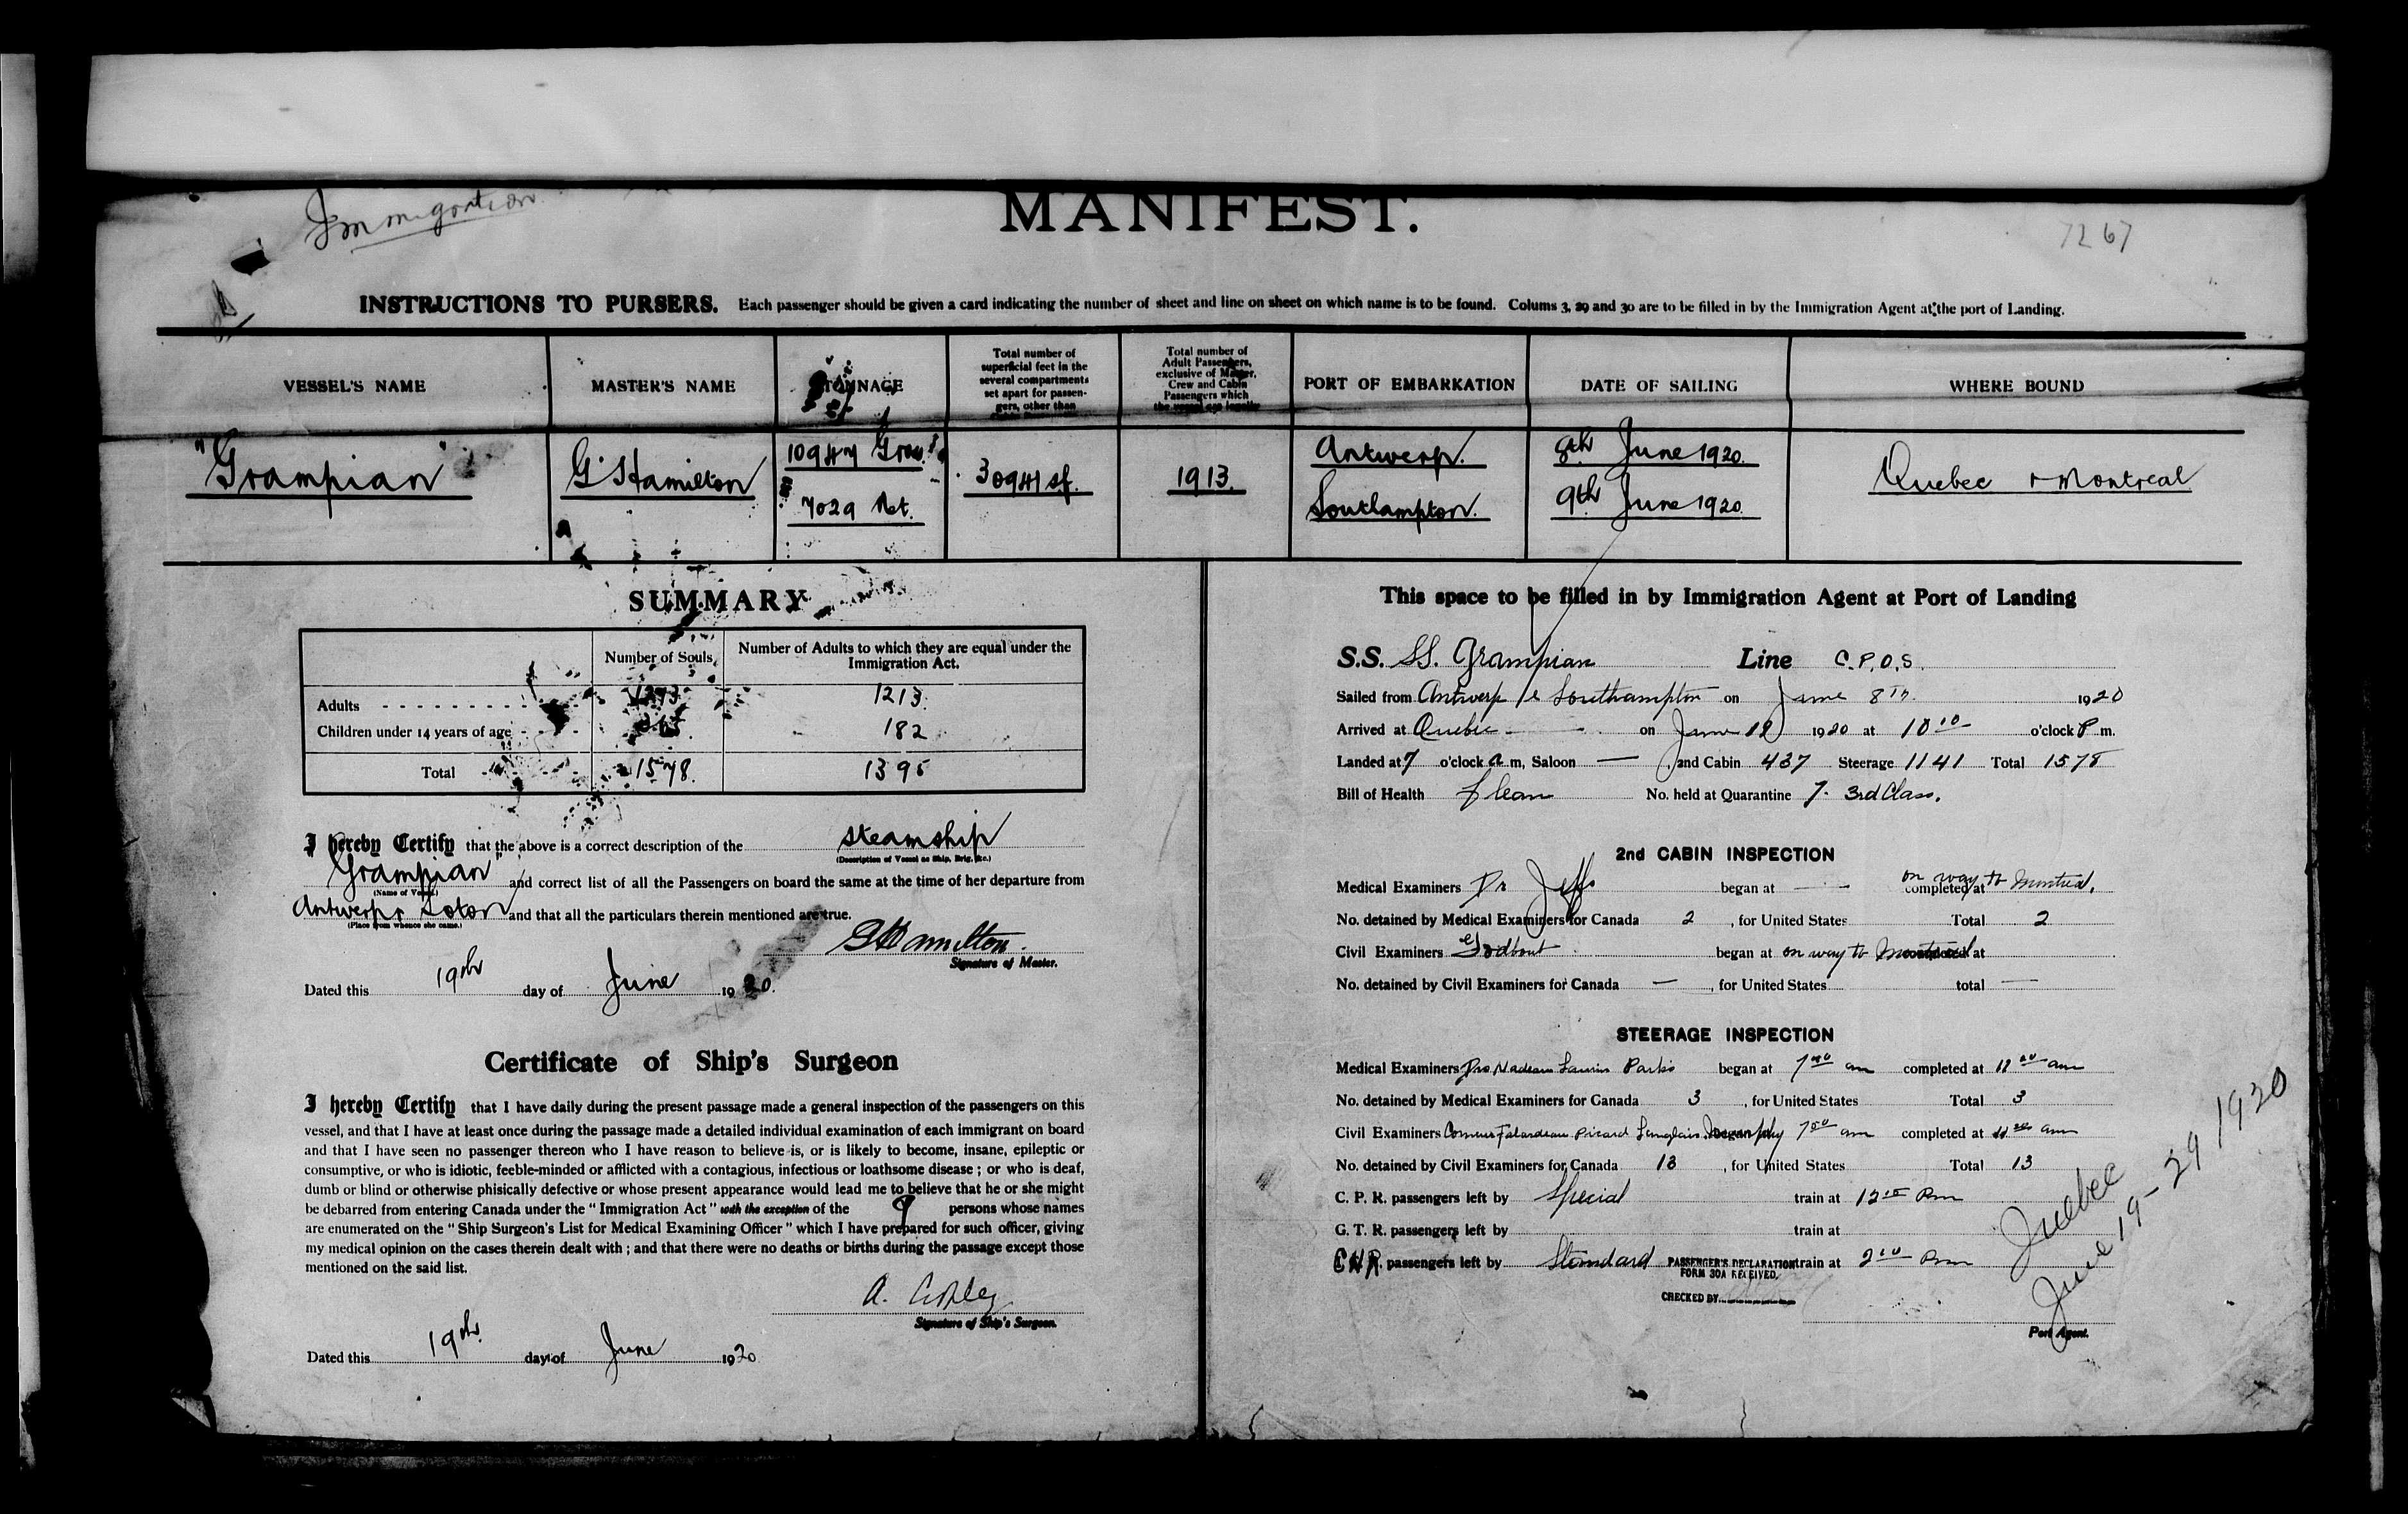 Immigration
MANIFEST.
7267
INSTRUCTIONS TO PURSERS. Each passenger should be given a card indicating the number of sheet and line on sheet on which name is to be found. Colums 3, 29 and 30 are to be filled in by the Immigration Agent at the port of Landing.
VESSEL'S NAME
MASTER'S NAME
TONNAGE
Total number of superficial feet in the several compartments set apart for passengers, other than
Total number of Adult Passengers, exclusive of Master, Crew and Cabin Passengers which
PORT OF EMBARKATION
DATE OF SAILING
WHERE BOUND
"Grampian"
G Hamilton
10947 Gross
7029 Net.
30941 sf.
1913.
Antwerp.
Southampton.
8th June 1920.
9th June 1920.
Quebec + Montreal
SUMMARY
Number of Souls
Number of Adults to which they are equal under the Immigration Act.
Adults 1213.
Children under 14 years of age 365 182
Total 1578. 1395
I hereby Certify that the above is a correct description of the steamship
(Description of Vessel as Ship, Brig, &c.)
Grampian" and correct list of all the Passengers on board the same at the time of her departure from
(Name of Vessel.)
Antwerp + Soton and that all the particulars therein mentioned are true.
(Place from whence she came.)
G Hamilton.
Signature of Master.
Dated this 19th day of June 1920.
Certificate of Ship's Surgeon
I hereby Certify that I have daily during the present passage made a general inspection of the passengers on this
vessel, and that I have at least once during the passage made a detailed individual examination of each immigrant on board
and that I have seen no passenger thereon who I have reason to believe is, or is likely to become, insane, epileptic or
consumptive, or who is idiotic, feeble-minded or afflicted with a contagious, infectious or loathsome disease; or who is deaf,
dumb or blind or otherwise phisically defective or whose present appearance would lead me to believe that he or she might
be debarred from entering Canada under the "Immigration Act" with the exception of the 9 persons whose names
are enumerated on the "Ship Surgeon's List for Medical Examining Officer" which I have prepared for such officer, giving
my medical opinion on the cases therein dealt with; and that there were no deaths or births during the passage except those
mentioned on the said list.
A.
Signature of Ship's Surgeon.
Dated this 19th day of June 1920
This space to be filled in by Immigration Agent at Port of Landing
S.S. SS. Grampian Line C.P.O.S.
Sailed from Antwerp & Southampton on June 8th 1920
Arrived at Quebec on June 18 1920 at 10 10 o'clock P m.
Landed at 7 o'clock a m, Saloon — 2nd Cabin 437 Steerage 1141 Total 1578
Bill of Health Clean No. held at Quarantine 7. 3rd Class.
2nd CABIN INSPECTION
Medical Examiners Dr Jeffs began at — completed at on way to Montreal.
No. detained by Medical Examiners for Canada 2, for United States Total 2
Civil Examiners Godbout began at on way to Montreal at
No. detained by Civil Examiners for Canada —, for United States total —
STEERAGE INSPECTION
Medical Examiners Drs. Nadeau Laurin Parks began at 7 00 am completed at 11 00 am
No. detained by Medical Examiners for Canada 3, for United States Total 3
Civil Examiners Falardeau Picard Langlais 7 00 am completed at 11 00 am
No. detained by Civil Examiners for Canada 13, for United States Total 13
C. P. R. passengers left by Special train at 12 15 Pm
G. T. R. passengers left by train at
C N R. passengers left by Standard train at 2 00 Pm
PASSENGER'S DECLARATION
FORM 30A RECEIVED.
CHECKED BY
Port Agent.
Quebec
June 19 - 29 1920